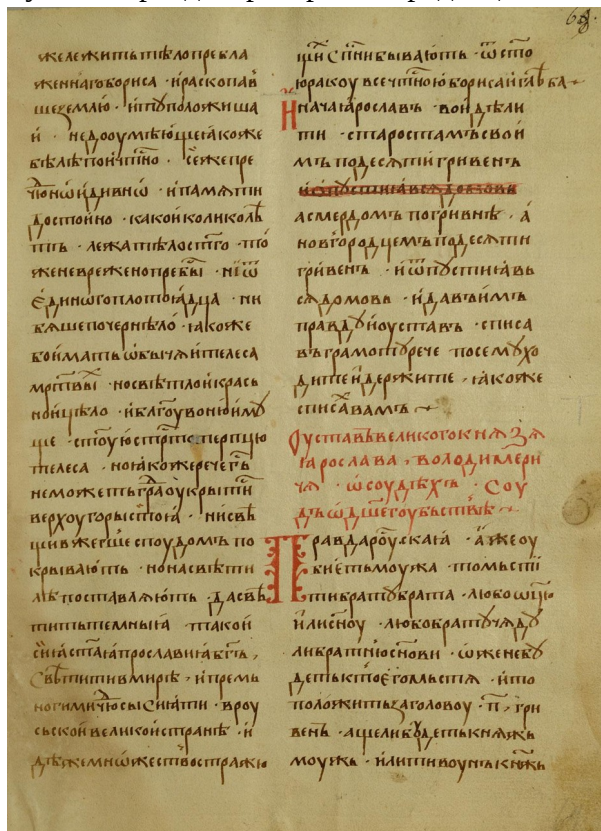 жележитьтѣлопребла
женнагобориса · ираскопав
шеземлю · итуположиша
и · недооумѣющеꙗкоже
бѣлѣпоичт̃но · сежепре
достоино · какоиколиколѣ
тъ · лежатѣлост҃го · то
женевреженопребы · ниѿ
единогоплотоꙗдца · ни
бѧшепочернѣло · ꙗкоже
боиматьѡбычаителеса
мр҃твы · носвѣтлоикрась
ноицѣло · иблагоувониому
ще
телеса · ноꙗкожеречегь
неможетьградоукрытис
верхоугорыстоꙗ · нисвѣ
щивжегшеспоудомъпо
крывають · нонасвѣти
лѣпоставляють · дасвѣ
титьтемныꙗ такои
сиꙗст҃аꙗпрославиꙗбг҃ъ,
свѣтитивмирѣ · ипремь
ногимичюсысиꙗти · вроу
сьскоивеликоистранѣ · и
дѣжемножествостражю
щиисп҃нибывають · ѿсто
юракоувсечт҃ноюборисаиглѣба
Иначаꙗрославъ · воидѣли
ти · старостамъсвои
мъподесѧтигривенъ
асмердомъпогривнѣ , а
новгородцемъподесѧти
гривенъ · иѿпустиꙗвь
сѧдомовь · идавъимъ
правдуиоуставъ · списа
въграмотуречепосемухо
дитеидержите · ꙗкоже
списахвамъ
Оуставъвеликогокнязя
ꙗрослава, володимери
чя · ѡсоудѣхъ · Соу
дъѡдш҃егоубьствѣ
Правдароускаꙗ · ажеоу
биетьмоужа · томьсти
тибратубрата · любоѡц҃ю
илисн҃оу · любобратучѧду
либратнюсн҃ови · ѡженебу
детьктоегомьстѧ · ито
положитьзаголовоу · п҃ , гри
венъ · ащелибудетькнѧжь
моужь · илитивоунъкнѧжь